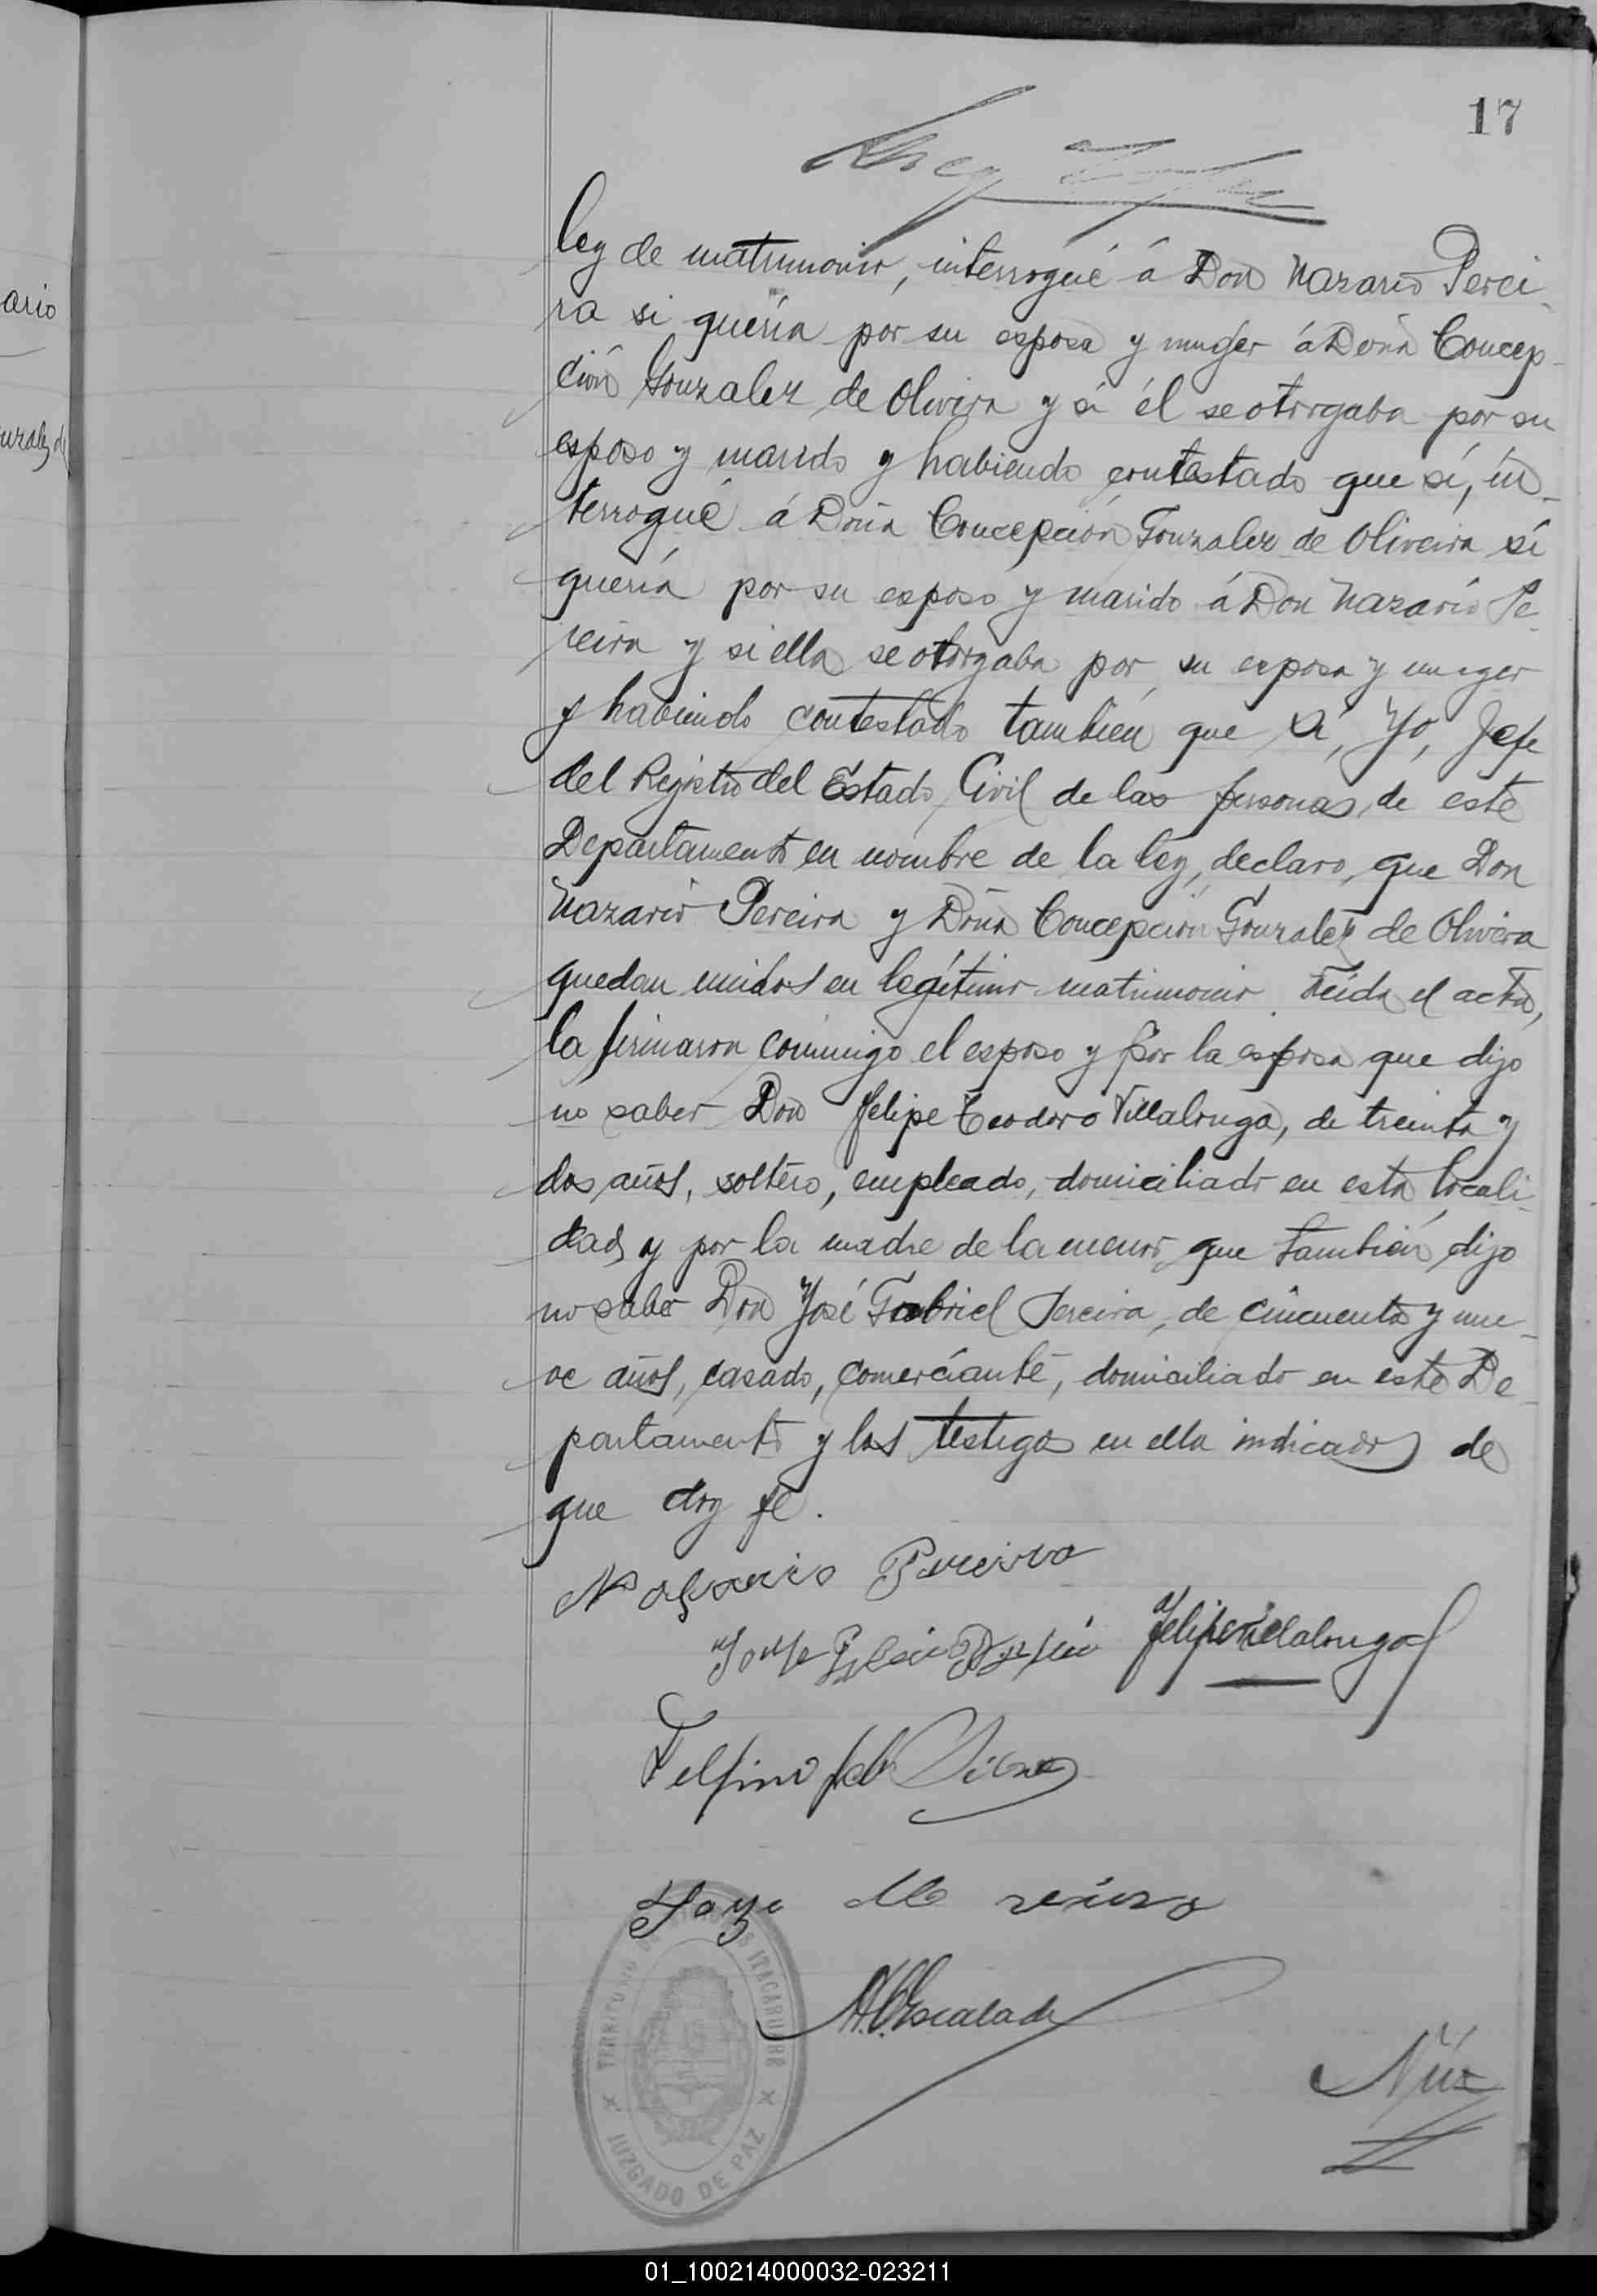 17
ley de matrimonio, interrogué á Don Nazario Perei-
ario
ra si quería por su esposa y muger á Doña Concep-
ción Gonzalez de Oliveira y si él se otorgaba por su
esposo y marido y habiendo contestado que sí, in-
terrogué á Doña Concepción Gonzalez de Oliveira si
quería por su esposo y marido á Don Nazario Pe-
reira y si ella se otorgaba por su esposa y muger
y habiendo contestado también que sí, Yo, Jefe
del Registro del Estado Civil de las personas de este
Departamento en nombre de la ley, declaro que Don
Nazario Pereira y Doña Concepción Gonzalez de Oliveira
quedan unidos en legítimo matrimonio. Leída el acta,
la firmaron conmigo el esposo y por la esposa que dijo
no saber Don Felipe Teodoro Villalonga, de treinta y
dos años, soltero, empleado, domiciliado en esta locali-
dad, y por la madre de la menor que también dijo
no saber Don José Gabriel Pereira, de cincuenta y nue-
ve años, casado, comerciante, domiciliado en este De-
partamento y los testigos en ella indicados de
que doy fe.
Nazario Pereira
Felipe Villalonga
A. C. Escalada
TERRITORIO DE ITACARUARÉ
JUZGADO DE PAZ
01_100214000032-023211